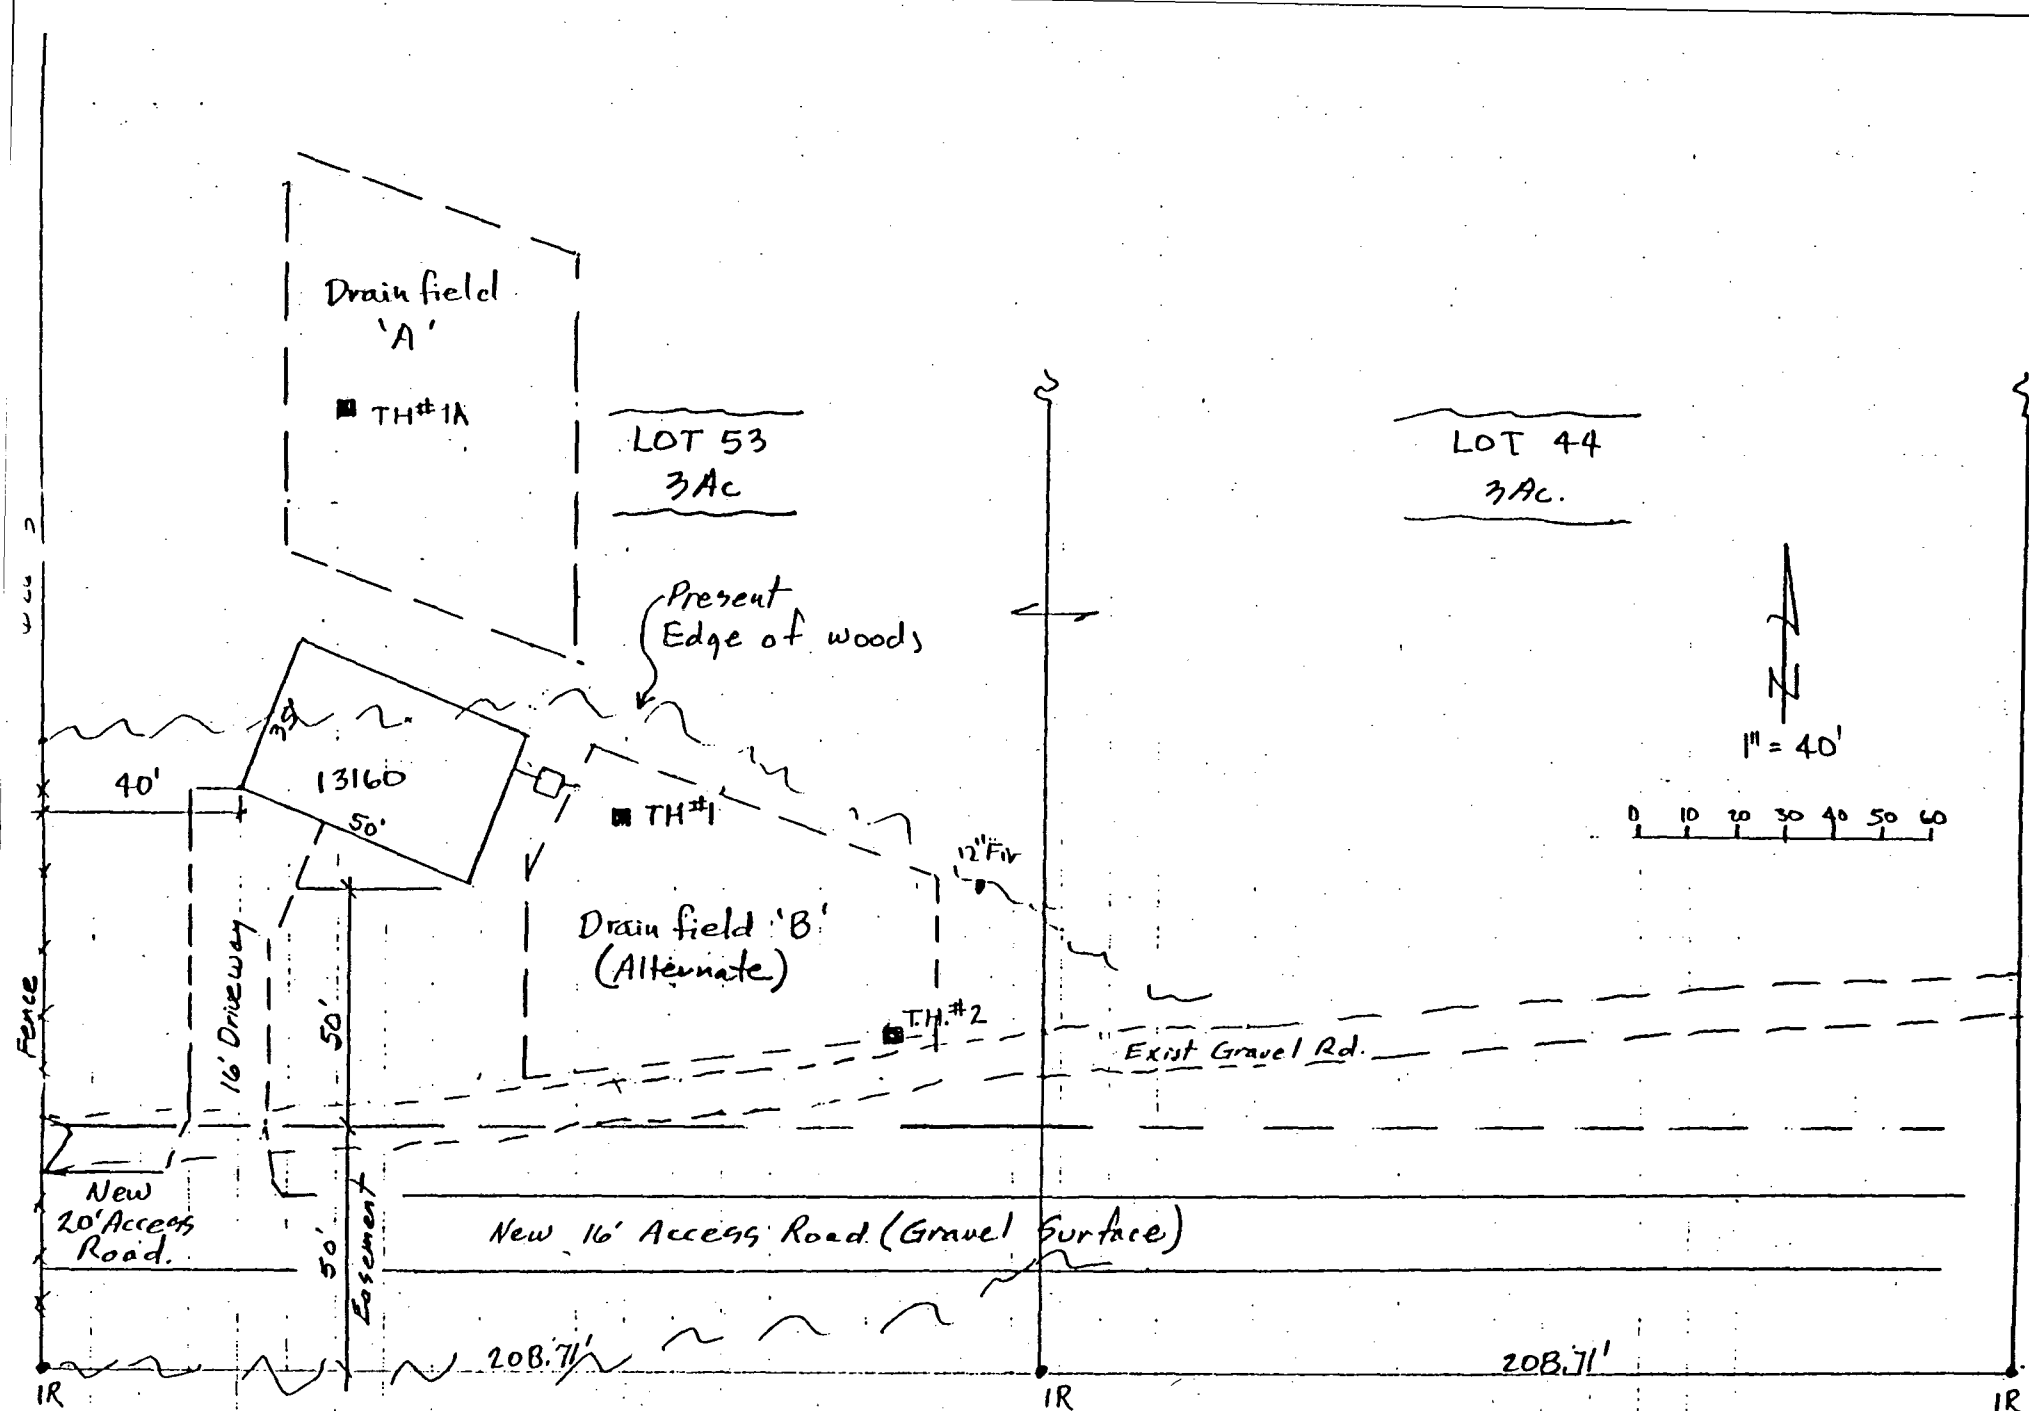 Drain field
'A'
TH#1A
LOT 53
3Ac
LOT 44
3Ac.
Present
Edge of woods
N
1" = 40'
0 10 20 30 40 50 60
40'
35'
13160
50'
TH#1
12" Fir
Drain field 'B'
(Alternate)
T.H.#2
Fence
16' Driveway
50'
Exist Gravel Rd.
New
20' Access
Road.
50'
Easement
New 16' Access Road (Gravel Surface)
208.71'
208.71'
IR
IR
IR